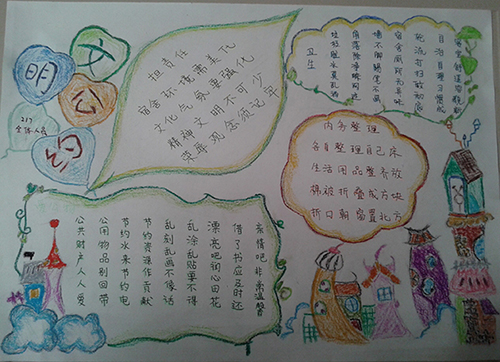 文明公约
217
全体人员
担责任
宿舍环境需美化
文化气氛要强化
精神文明不可少
荣辱观念须记牢
卫生
自治自理习惯成
轮流打扫
宿舍厕所无异味
墙不脚踢笔不画
角落除净
垃圾脏水莫乱
内务整理
各自整理自己床
生活用品整齐放
棉被折叠成方块
折口朝窗置北方
亲情吧非常温馨
借了书应及时还
漂亮吧
乱涂乱贴要不得
乱刻乱画不像话
节约资源作贡献
节约水来节约电
公用物品别回带
公共财产人人爱